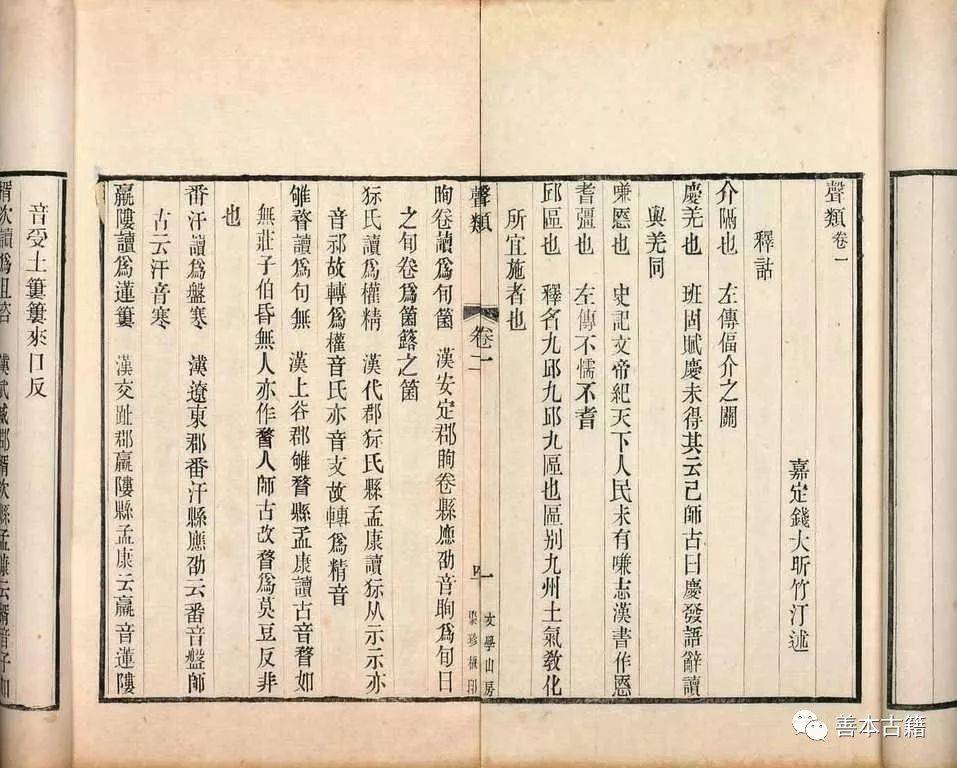 聲類卷一
釋詁
嘉定錢大昕竹汀述
介隔也　左傳偪介之關
慶羌也　班固賦慶未得其云已師古曰慶發語辭讀
與羌同
嗛㥦也　史記文帝紀天下人民未有嗛志漢書作㥦
耆彊也　左傳不懦不耆
邱區也　釋名九邱九邱九區也區別九州土氣敎化
所宜施者也
聲類
卷
一
文學山房
聚珍板印
眴卷讀爲旬箘　漢安定郡眴卷縣應劭音眴爲旬日
之旬卷爲箘簬之箘
狋氏讀爲權精　漢代郡狋氏縣孟康讀狋从示示亦
音祁故轉爲權音氏亦音支故轉爲精音
雊瞀讀爲句無　漢上谷郡雊瞀縣孟康讀古音瞀如
無莊子伯昏無人亦作瞀人師古改瞀爲莫豆反非
也
番汗讀爲盤寒　漢遼東郡番汗縣應劭云番音盤師
古云汗音寒
羸䧁讀爲蓮簍　漢交趾郡羸䧁縣孟康云羸音蓮䧁
音受土簍簍來口反
善本古籍